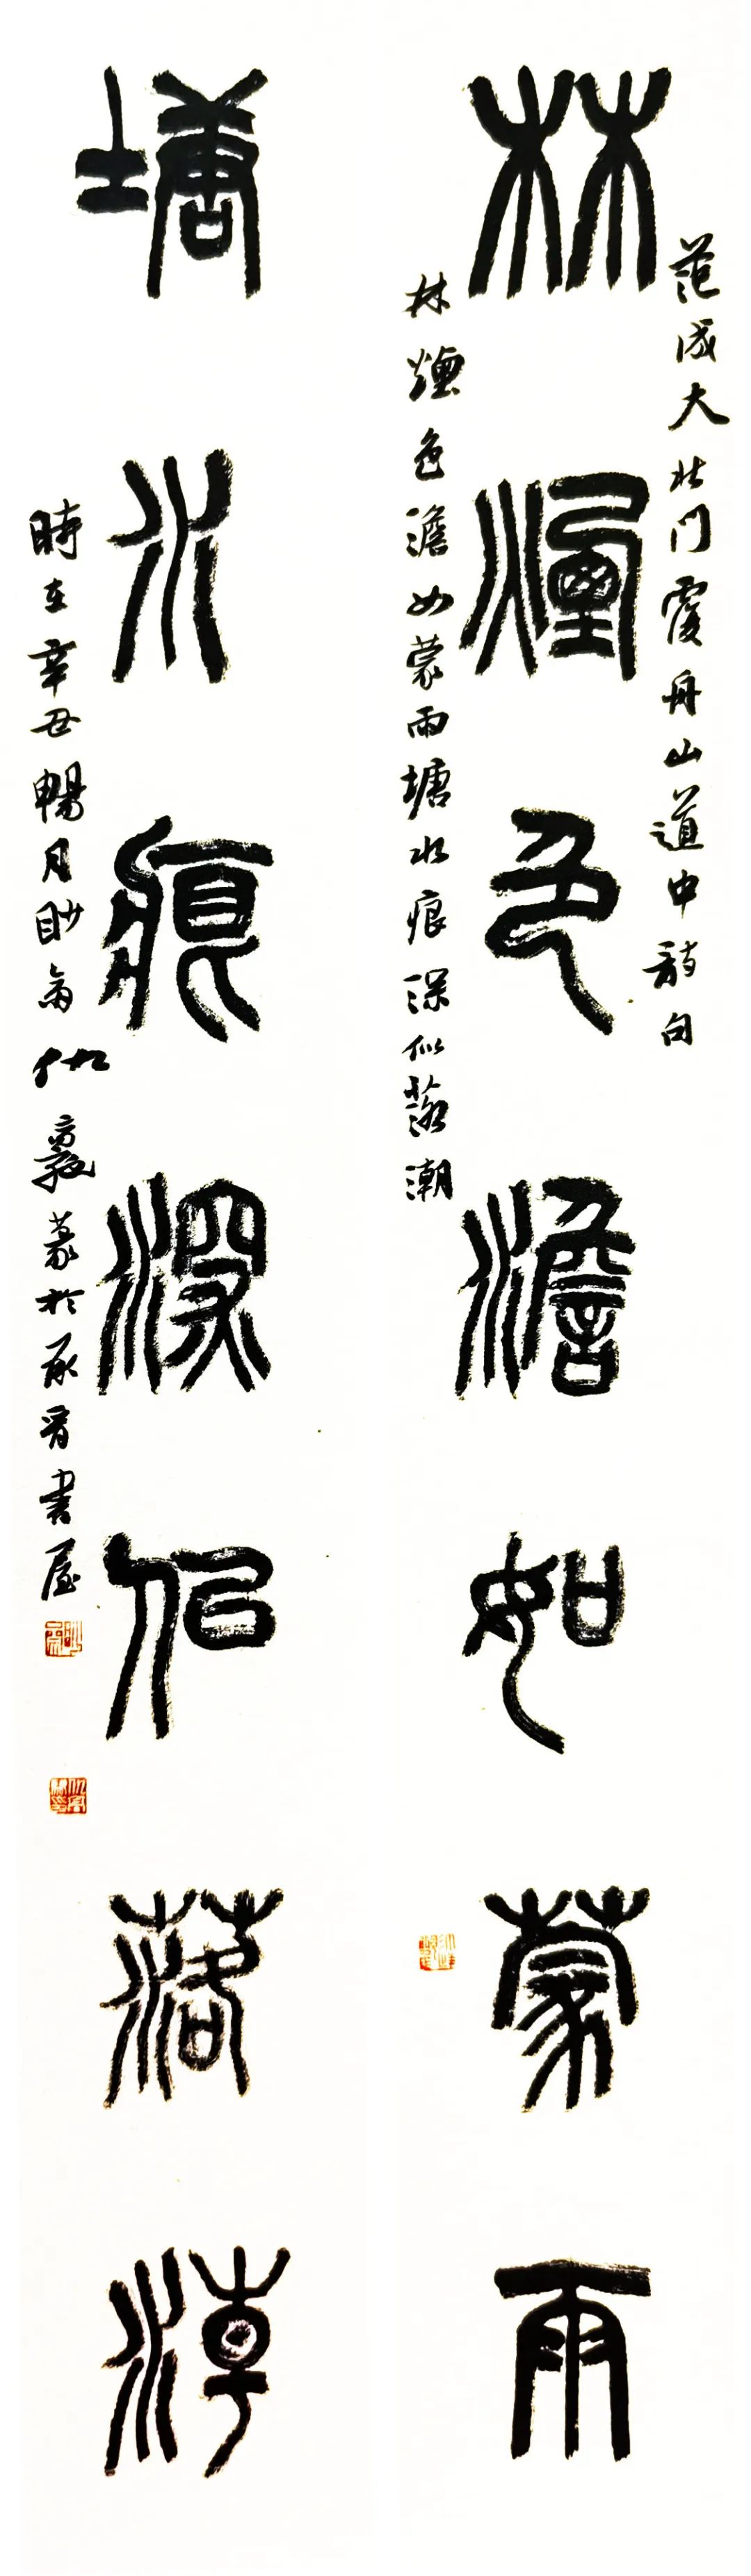 范成大北门覆舟山道中诗句
林烟色澹如蒙雨
林烟色澹如蒙雨塘水痕深似落潮
塘水痕深似落潮
時在辛丑暢月
篆於承晋書屋